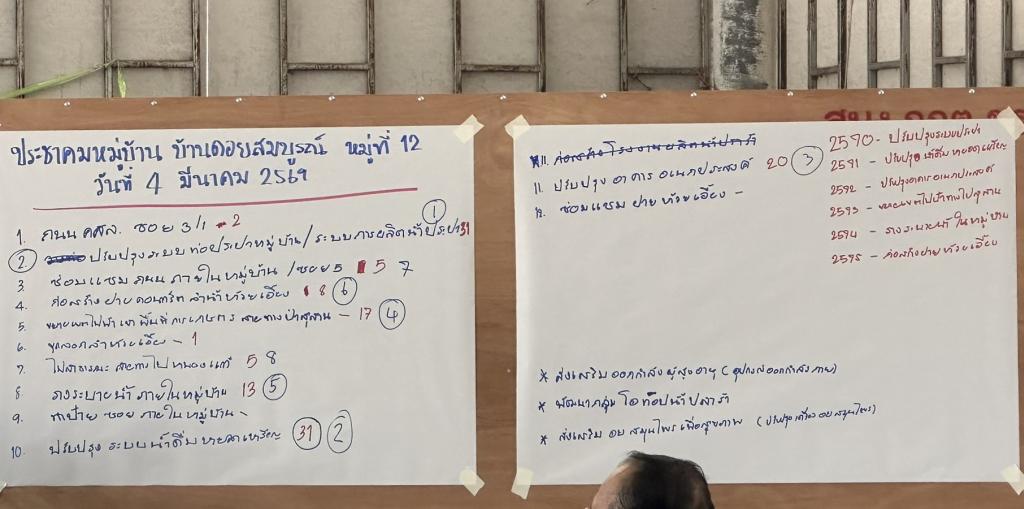 ประชาคมหมู่บ้าน บ้านดอยสมบูรณ์ หมู่ที่ 12
วันที่ 4 มีนาคม 2569
1. ถนน คสล. ซอย 3/1 - 2
① 
② ปรับปรุงระบบท่อประปาหมู่บ้าน/ระบบการผลิตน้ำประปา 31
3. ซ่อมแซม ถนน ภายในหมู่บ้าน /ซอย 5 5 7
4. ก่อสร้าง ฝาย คอนกรีต ลำน้ำห้วยเอี้ยง 8 ⑥
5. ขยายเขตไฟฟ้า เขา พื้นที่การเกษตร สายทางป่าสุสาน - 17 ④
6. ขุดลอกลำห้วยเอี้ยง - 1
7. ไฟสาธารณะ สายทางไป 5 8
8. รางระบายน้ำ ภายในหมู่บ้าน 13 ⑤
9. ทำป้าย ซอย ภายในหมู่บ้าน -
10. ปรับปรุง ระบบน้ำดื่ม 31 ②
11. ก่อสร้างโรงงานผลิตน้ำปลาร้า
11. ปรับปรุง อาคาร อเนกประสงค์ 20 ③
12. ซ่อมแซม ฝาย ห้วยเอี้ยง -
2570 - ปรับปรุงระบบประปา
2571 - ปรับปรุงน้ำดื่ม
2572 - ปรับปรุงอาคารอเนกประสงค์
2573 - ขยายเขตไฟฟ้าทางไปสุสาน
2574 - รางระบายน้ำ ในหมู่บ้าน
2575 - ก่อสร้างฝาย ห้วยเอี้ยง
* ส่งเสริม ออกกำลัง ผู้สูงอายุ (อุปกรณ์ออกกำลังกาย)
* พัฒนากลุ่ม โอท็อปน้ำปลาร้า
* ส่งเสริม อบ สมุนไพร เพื่อสุขภาพ (ปรับปรุงเครื่อง อบสมุนไพร)